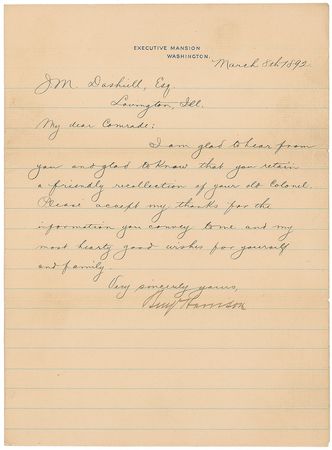 EXECUTIVE MANSION
WASHINGTON.
March 8th 1892.
J. M. Dashiell, Esq
Lovington, Ill.
My dear Comrade:
I am glad to hear from
you and glad to know that you retain
a friendly recollection of your old Colonel.
Please accept my thanks for the
information you convey to me and my
most hearty good wishes for yourself
and family.
Very sincerely yours,
Benj Harrison